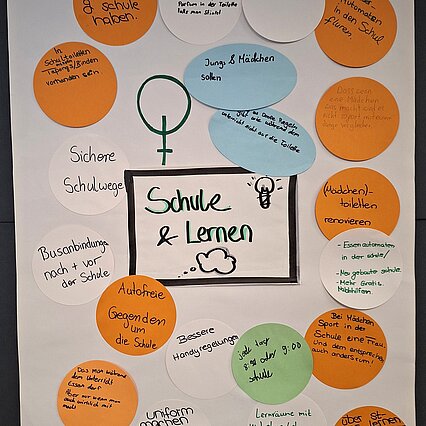 g schule
haben.
Parfum in der Toilette
falls man stinkt
Automaten
in den Schul
fluren
In
Schultoiletten
Tampons/Binden
vorhanden sein.
Jungs & Mädchen
sollen
während dem
unterricht nicht auf die Toilette
Dass wenn
eine Mädchen
Das macht und es
nicht sofort mit einem
Junge vergleichen
Sichere
Schulwege
Schule
& Lernen
(Mädchen)-
toiletten
renovieren
Busanbindung
nach + vor
der Schule
- Essenautomaten
in der schule/
- Neu gebaute schule
- Mehr Gratis
Autofreie
Gegenden
um
die Schule
Bessere
Handyregelungen
jede tag
8:00 oder 9:00
schule
Bei Mädchen
Sport in der
Schule eine Frau.
Und dem entsprechend
auch andersrum!
Das man während
dem Unterricht
Essen darf
Aber nur wenn man
auch wirklich mit
macht
uniform
machen
Lernräume mit
über st-
lernen